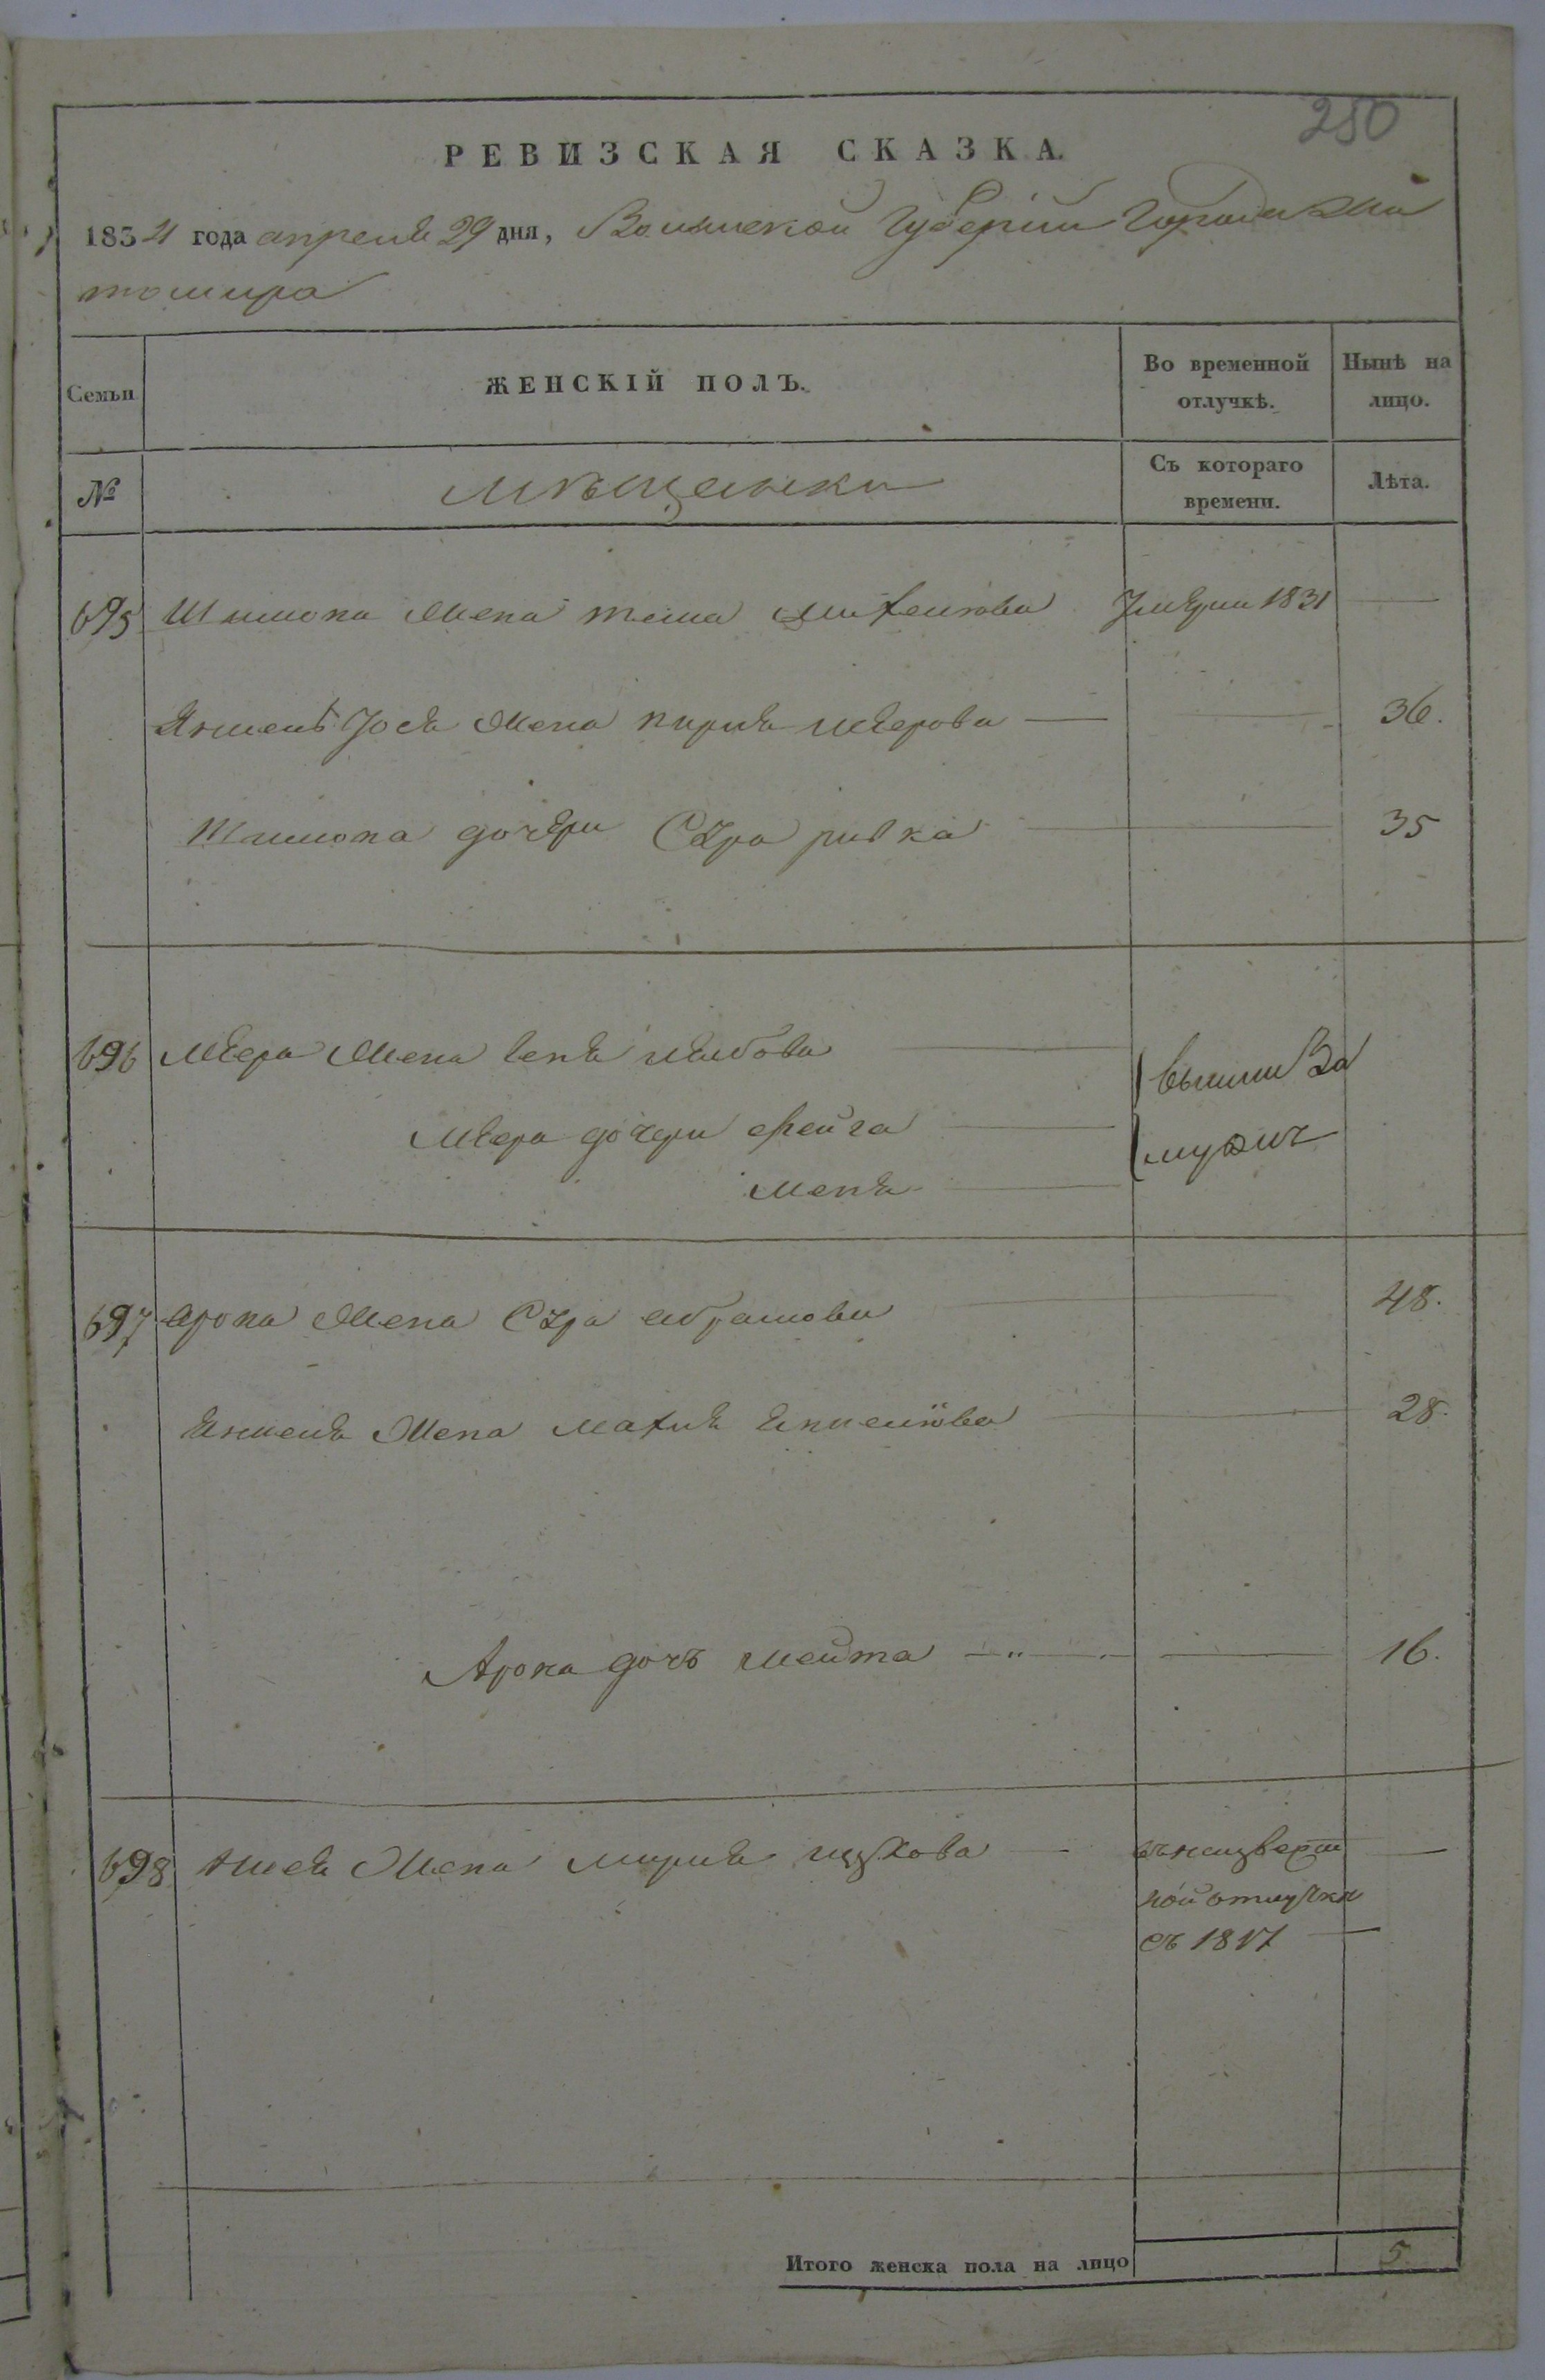 250
РЕВИЗСКАЯ СКАЗКА.
1834 года апреля 29 дня, Волынской Губерніи Города Жи
томира
Семьи
ЖЕНСКІЙ ПОЛЪ.
Во временной отлучкѣ.
Нынѣ на лицо.
№
мѣщанки
Съ котораго времени.
Лѣта.
695 Шлиома Жена тема Михелiова Умерли 1831 —
Янкель Йося Жена пирля меерова — — 36.
Шлиома дочери Сура ривка — 35
696 Меера Жена лейбова — вышли За
Меера дочери фейга — мужъ
—
697 арона Жена Сура абрамова — 48.
Янкеля Жена Махля — 28.
Арона дочъ мейта — — 16.
698 Жена мирля — въ неизвест —
ной отлучки
съ 1817 —
Итого женска пола на лицо 5